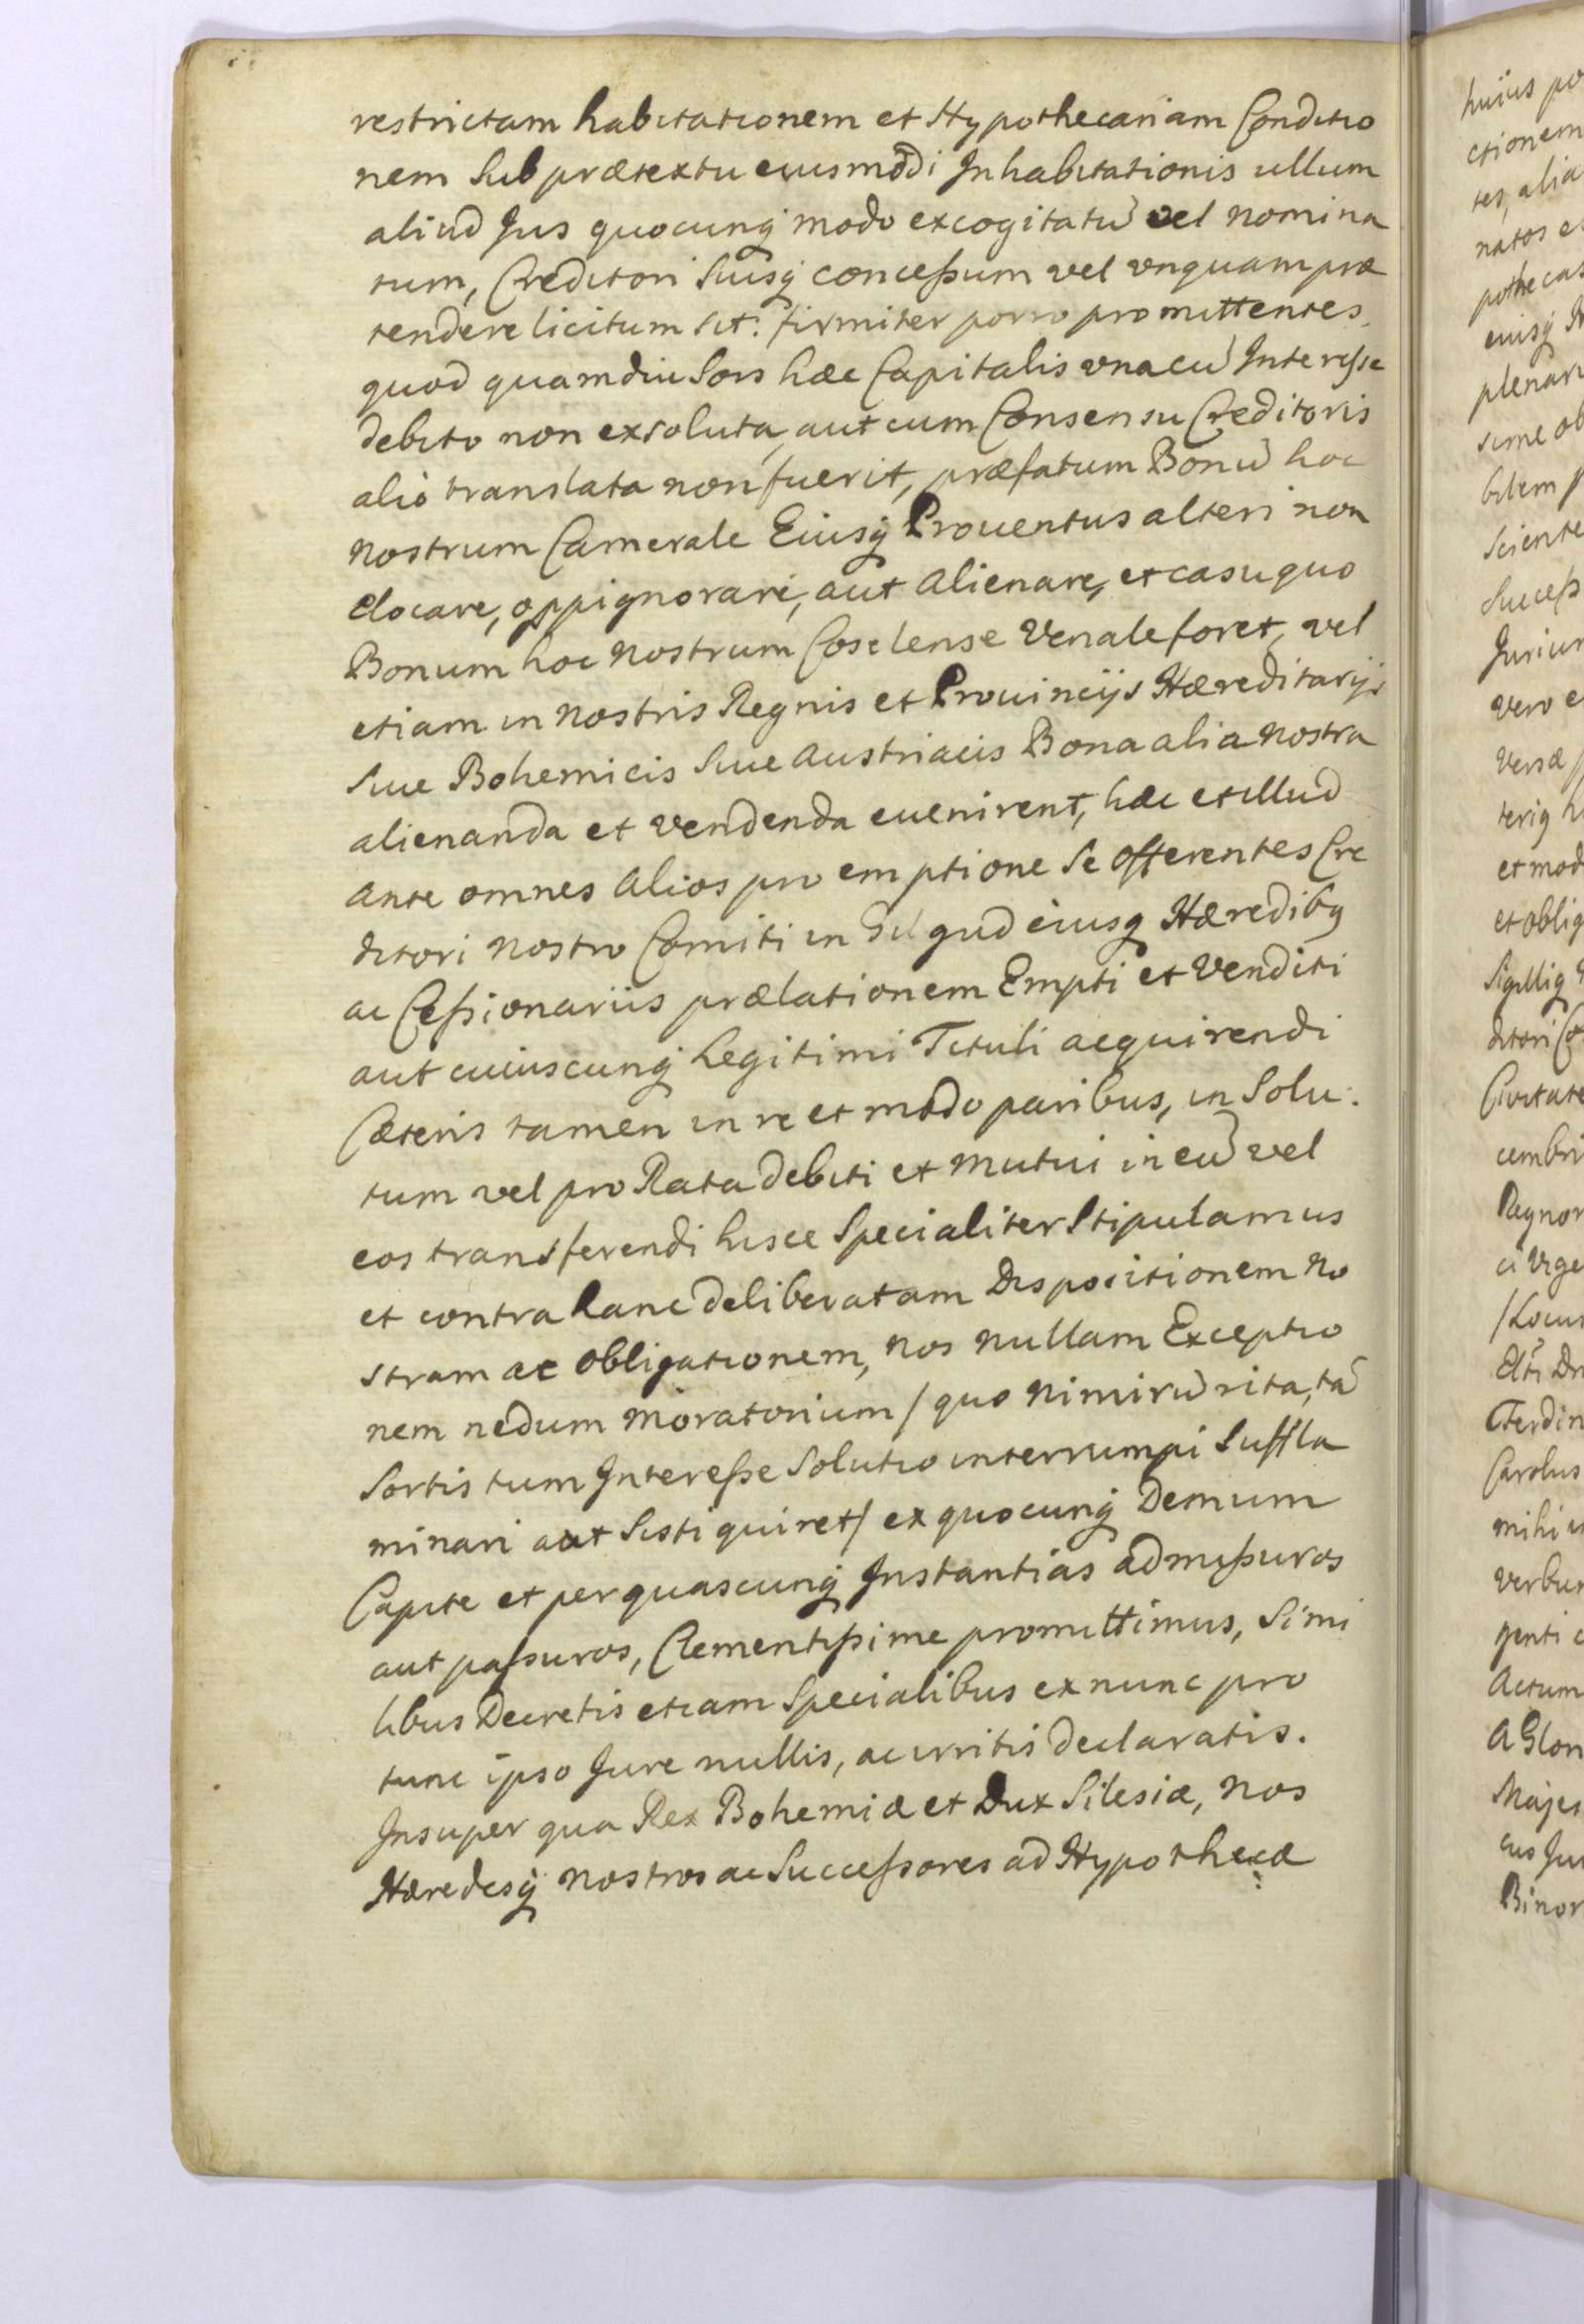 restrictam habitationem et Hypothecariam Conditio
nem sub prætextu eiusmodi Inhabitationis ullum
aliud Jus quocunq modo excogitatũ vel nomina
tum, Creditori suisq concessum vel vnquam præ
tendere licitum sit: firmiter porro promittentes,
quod quamdiu Sors hæc Capitalis vna cũ Interesse
debito non exsoluta, aut cum Consensu Creditoris
alio translata non fuerit, præfatum Bonũ hoc
nostrum Camerale Eiusq Prouentus alteri non
elocare, oppignorare, aut alienare, et casu quo
Bonum hoc nostrum Coslense venale foret, vel
etiam in nostris Regnis et Prouincijs Hæreditarijs
siue Bohemicis siue Austriacis Bona alia nostra
alienanda et vendenda euenirent, hæc et illud
ante omnes alios pro emptione se offerentes Cre
ditori nostro Comiti in eiusq Hæredibq
ac Cessionariis prælationem Empti et Venditi
aut cuiuscunq Legitimi Tituli acquirendi
Cæteris tamen in re et modo paribus, in Solu:
tum vel pro Rata debiti et mutui in eũ vel
eos transferendi hisce specialiter stipulamus
et contra hanc deliberatam Dispositionem no
stram ac obligationem, nos nullam Exceptio
nem nedum moratorium / quo nimirũ rita, tã
Sortis tum Interesse Solutio interrumpi suffla
minari aut sisti quiret / ex quocunq Demum
Capite et per quascunq Instantias admissuros
aut passuros, Clementissime promittimus, simi
libus Decretis etiam specialibus ex nunc pro
tunc ipso Jure nullis, ac irritis declaratis.
Insuper qua Rex Bohemiæ et Dux Silesiæ, nos
Hæredesq nostros ac Successores ad Hypothecæ
huius po
ctionem
tes, alia
natos e
pothecas
eiusq H
plenari
sime ob
bilem p
Sciente
Success
Jurium
vero e
versæ p
teriq h
et mod
et oblig
Sigilliq
ditori Co
Ciuitate
cembri
Regnor
ci Vrge
/Locus
Ferdin
Carolus
mihi
verbum
genti c
Actum
A Glon
Majes
eus Ju
Binor